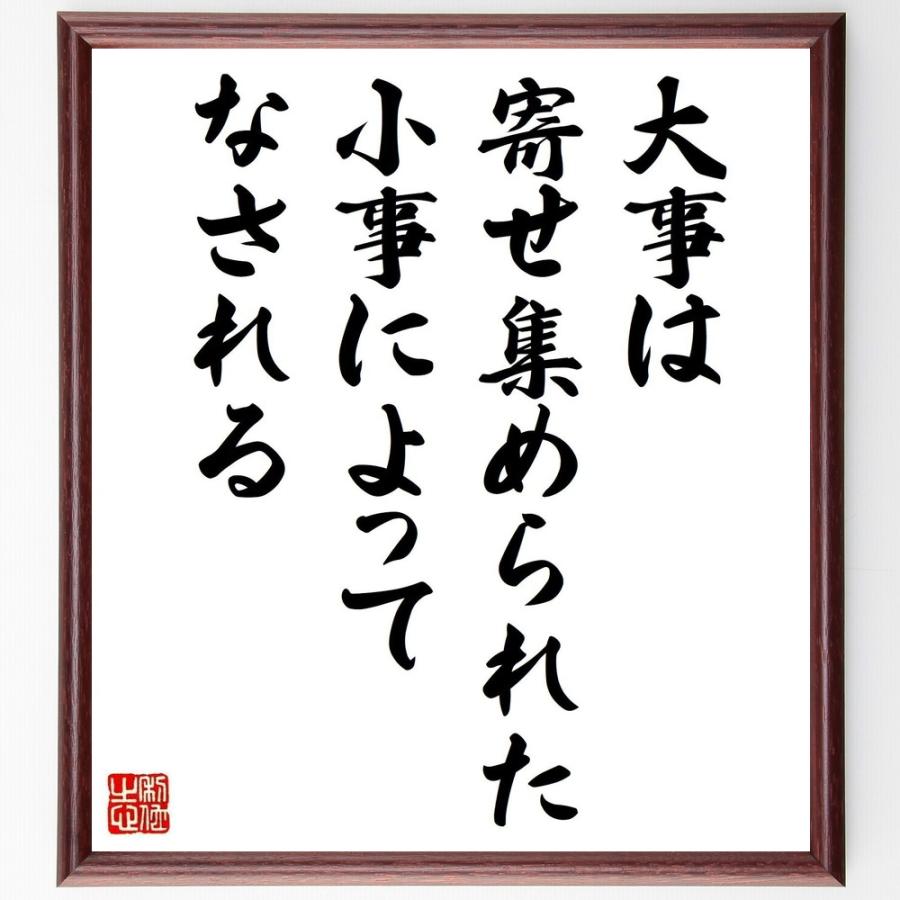 大事は
寄せ集められた
小事によって
なされる